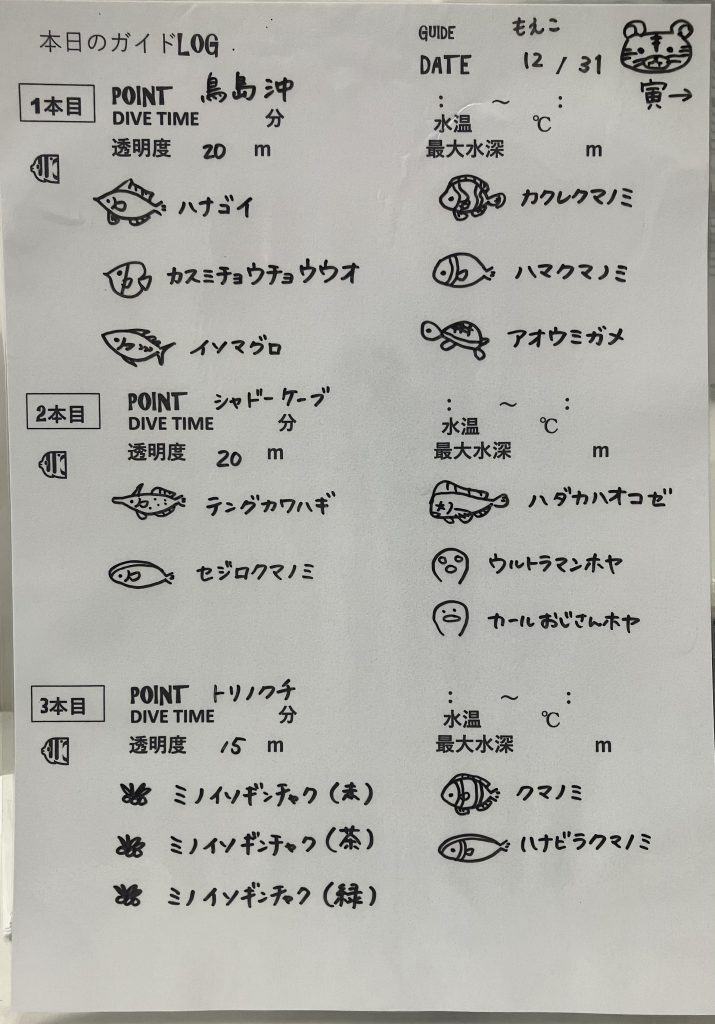 本日のガイドLOG
GUIDE もえこ
DATE 12 / 31
寅→
1本目
POINT 鳥島沖
DIVE TIME 分
: ～ :
水温 ℃
透明度 20 m
最大水深 m
ハナゴイ
カクレクマノミ
カスミチョウチョウウオ
ハマクマノミ
イソマグロ
アオウミガメ
2本目
POINT シャドーケーブ
DIVE TIME 分
: ～ :
水温 ℃
透明度 20 m
最大水深 m
テングカワハギ
ハダカハオコゼ
セジロクマノミ
ウルトラマンホヤ
カールおじさんホヤ
3本目
POINT トリノクチ
DIVE TIME 分
: ～ :
水温 ℃
透明度 15 m
最大水深 m
ミノイソギンチャク(赤)
クマノミ
ミノイソギンチャク(茶)
ハナビラクマノミ
ミノイソギンチャク(緑)